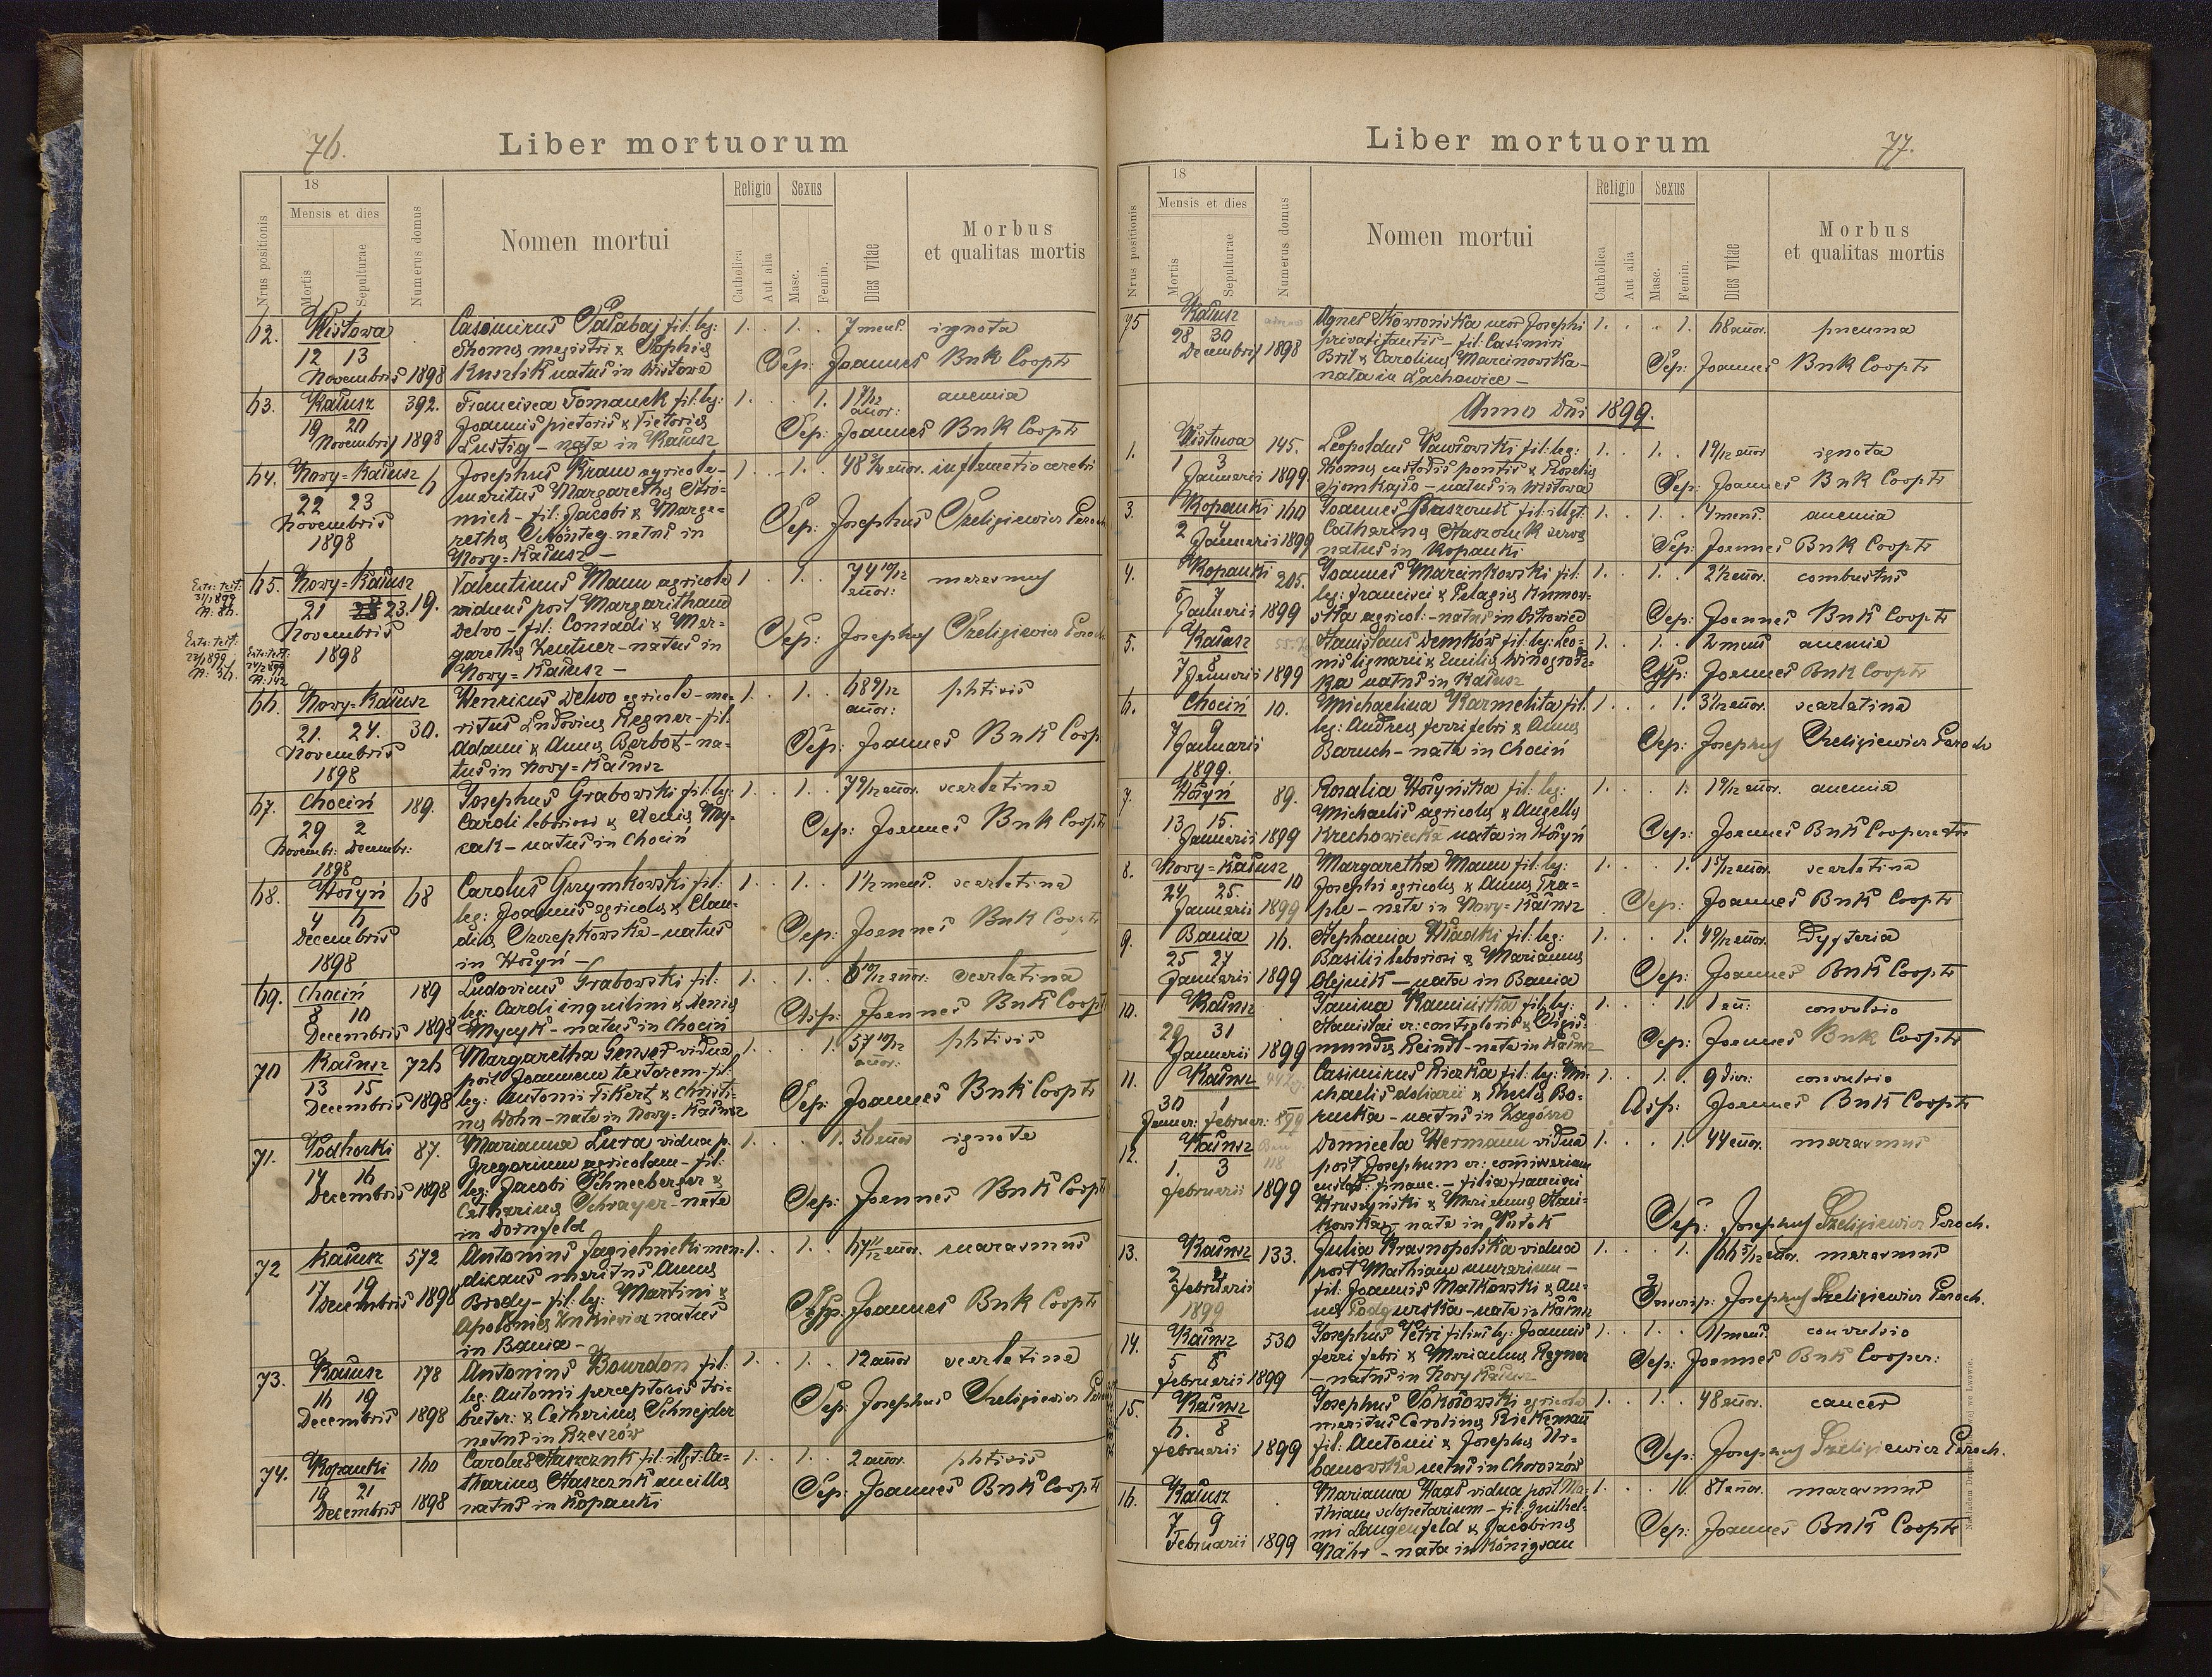 76.
Liber mortuorum
Nrus positionis
18
Mensis et dies
Mortis
Sepulturae
Numerus domus
Nomen mortui
Religio
Catholica
Aut alia
Sexus
Masc.
Femin.
Dies vitae
Morbus
et qualitas mortis
62. Wistowa
12 13
Novembris 1898
Casimirus Pałabaj fil: leg:
Thomæ magistri & Sophiæ
natus in Wistowa
1. 1. 7 mens. ignota
Sep: Joannes Bnk Cooptr
63. Kałusz 392.
19 20
Novembris 1898
Francisca Tomanek fil: leg:
Joannis pictoris & Victoriæ
Lustig – nata in Kałusz
1. 1. 1 7/12 annor: anemia
Sep: Joannes Bnk Cooptr
64. Nowy=Kałusz 6
22 23
Novembris
1898
Josephus Kraus agricola –
maritus Margarethæ Stro=
mich – fil: Jacobi & Marga=
rethæ natus in
Nowy=Kałusz –
1. 1. annor. inflamatio cerebri
Sep: Josephus Szeligiewicz Paroch
Extr: test:
31/1 899
N: 86.
Extr: test:
N: 36.
Extr: test:
N: 142
65. Nowy=Kałusz
21 23. 19.
Novembris
1898
Valentinus Mann agricola
viduus post Margaritham
Delwo – fil: Conradi & Mar=
garethæ Zentner – natus in
Nowy=Kałusz –
1 1. 74 10/12 annor: marasmus
Sep: Josephus Szeligiewicz Paroch
66. Nowy=Kałusz
21. 24. 30.
Novembris
1898
Henricus Delwo agricola – ma=
ritus Ludovicæ Regner – fil:
Adami & Annæ Berbot – na=
tus in Nowy=Kałusz
1. 1. 68 9/12 annor: phtisis
Sep: Joannes Bnk Coop
67. Chocin 189.
29 2
Novemb: Decembr:
1898
Josephus Grabowski fil: leg:
Caroli laboriosi & Xeniæ My=
cak – natus in Chocin
1. 1. 7 9/12 annor. scarlatina
Sep: Joannes Bnk Cooptr
68. Hołyń 68
4 6
Decembris
1898
Carolus Grzymkowski fil:
leg: Joannis agricolæ & Clau=
diæ Szczepkowska – natus
in Hołyń –
1. 1. 1 1/2 mens. scarlatina
Sep: Joannes Bnk Cooptr
69. Chocin 189
8 10
Decembris 1898
Ludovicus Grabowski fil:
leg: Caroli inquilini & Xeniæ
Mycyk – natus in Chocin
1. 1. 6 10/12 annor: scarlatina
Sep: Joannes Bnk Coopt
70 Kałusz 726
13 15
Decembris 1898
Margaretha Genser vidua
post Joannem textorem – fil:
leg: Antonii Fikert & Christi=
næ Wohn – nata in Nowy=Kałusz
1. 1. 57 10/12 annor: phtisis
Sep: Joannes Bnk Cooptr
71. Podhorki 87.
14 16
Decembris 1898
Marianna Lura vidua p.
Gregorium agricolam – fil:
leg: Jacobi Schneeberger &
Catharinæ Schrayer – nata
in Dornfeld
1. 1. 56 annor ignota
Sep: Joannes Bnk Coopt
72 Kałusz 572
17 19
Decembris 1898
Antonius Jagielnicki men=
dicans maritus Annæ
Brody – fil: leg: Martini &
Apoloniæ Zinkiewicz natus
in Bania –
1. 1. 67 11/12 annor. marasmus
Sep: Joannes Bnk Cooptr
73. Kałusz 178
16 19
Decembris 1898
Antonius Bourdon fil:
leg: Antonii perceptoris tri=
butor: & Catharinæ Schnejder
natus in Rzeszów
1. 1. 12 annor scarlatina
Sep: Josephus Szeligiewicz Paro
74. Kopanki 160
19 21
Decembris 1898
Carolus Staszczuk fil: illgt: Ca=
tharinæ Staszczuk ancillæ
natus in Kopanki
1. 1. 2 annor. phtisis
Sep. Joannes Bnk Cooptr
Liber mortuorum
77.
Nrus positionis
18
Mensis et dies
Mortis
Sepulturae
Numerus domus
Nomen mortui
Religio
Catholica
Aut alia
Sexus
Masc.
Femin.
Dies vitae
Morbus
et qualitas mortis
75 Kałusz
28 30
Decembris 1898
Agnes Skowrońska uxor Josephi
privatisantis – fil: Casimiri
Bril & Carolinæ Marcinowska –
nata in Lachowice –
1. 1. 68 annor. pneuma
Sep: Joannes Bnk Cooptr
Anno Dni 1899.
1. Wistowa 145.
1 3
Januarii 1899.
Leopoldus Pawłowski fil: leg:
Thomæ custodis pontis & Rosaliæ
natus in Wistowa
1. 1. 1 9/12 annor ignota
Sep: Joannes Bnk Cooptr
3. Kopanki 160
2 4
Januarii 1899
Joannes Staszczuk fil: illgt.
Catharinæ Staszczuk servæ
natus in Kopanki
1. 1. 4 mens. anemia
Sep: Joannes Bnk Cooptr
4. Kopanki 205.
5 7
Januarii 1899
Joannes Marcinkowski fil:
leg: Francisci & Pelagiæ Kumow=
ska agricol: – natus in Ostrowica
1. 1. 2 1/2 annor. combustus
Sep: Joannes Bnk Cooptr
5. Kałusz
7 8
Januarii 1899
Stanislaus Demków fil: leg: Leo=
nis lignarii & Emiliæ Winogrodz=
ka natus in Kałusz
1. 1. 2 mens anemia
Sep: Joannes Bnk Cooptr
6. Chocin 10.
7 9
Januarii
1899.
Michaelina Karmelita fil.
leg: Andreæ ferri fabri & Annæ
Baruch – nata in Chocin
1. 1. 3 1/2 annor. scarlatina
Sep: Josephus Szeligiewicz Paroch
7. Hołyń 89.
13 15.
Januarii 1899
Rosalia Hołyńska fil: leg:
Michaelis agricolæ & Angellæ
Krechowiecka nata in Hołyń
1. 1. 1 9/12 annor. anemia
Sep: Joannes Bnk Cooperatr
8. Nowy=Kałusz 10
24 25.
Januarii 1899
Margaretha Mann fil: leg:
Josephi agricolæ & Annæ Tra=
ple – nata in Nowy=Kałusz
1. 1. 1 5/12 annor. scarlatina
Sep: Joannes Bnk Cooptr
9. Bania 16.
25 27
Januarii 1899
Stephania Hładki fil: leg:
Basilii laboriosi & Mariannæ
Olejnik – nata in Bania
1. 1. 4 9/12 annor. Dyfteria
Sep: Joannes Bnk Cooptr
10. Kałusz
29 31
Januarii 1899
Janina Kamińska fil: leg:
Stanislai cr: controloris & Sigis=
mundæ Reindl – nata in Kałusz
1. 1. 1 an: convulsio
Sep: Joannes Bnk Cooptr
11. Kałusz
30 1
Januar: Februar: 899
Casimirus Rierka fil: leg: Mi=
chaelis doliarii & Theclæ Bo=
ruska – natus in Zagórze
1. 1. 9 dier: convulsio
Asp: Joannes Bnk Cooptr
12. Kałusz
118
1. 3
Februarii 1899
Domicela Hermann vidua
post Josephum cr: commissarium
custod: financ. – filia Francisci
Kruszyński & Mariannæ Stani=
kowska – nata in Potok
1. 1. 44 annor. marasmus
Sep: Josephus Szeligiewicz Paroch.
13. Kałusz 133.
2 4
Februarii
1899
Julia Krasnopolska vidua
post Mathiam murarium –
fil: Joannis Matkowski & An=
næ Podgurska – nata in Kałusz
1. 1. 66 5/12 annor. marasmus
Josephus Szeligiewicz Paroch.
14. Kałusz 530
5 8
Februarii 1899
Josephus Petri filius leg: Joannis
ferri fabri & Mariannæ Regner
– natus in Nowy Kałusz
1. 1. 11 mens. convulsio
Sep: Joannes Bnk Cooper:
15. Kałusz
6. 8
Februarii 1899
Josephus Sokołowski agricola
maritus Carolinæ Riekeman
fil: Antonii & Josephæ Ur=
banowska natus in Chorosów
1. 1. 48 annor. cancer
Sep: Josephus Szeligiewicz Paroch.
16. Kałusz
7 9
Februarii 1899
Marianna Haas vidua post Ma=
thiam sclopetarium – fil: Guilhel=
mi Langenfeld & Jacobinæ
Nähr – nata in Königsau
1. 1. 87 annor. marasmus
Sep: Joannes Bnk Cooptr